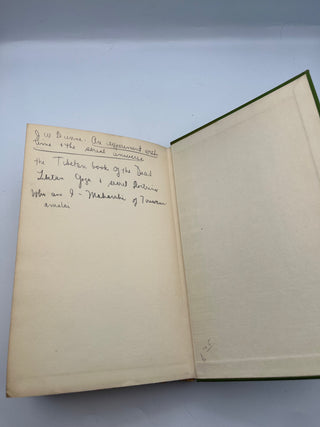 J W Dunne - An experiment with
time & the serial universe
The Tibetan book of the Dead
Tibetan Yoga & secret doctrines
Who am I - Maharshi of